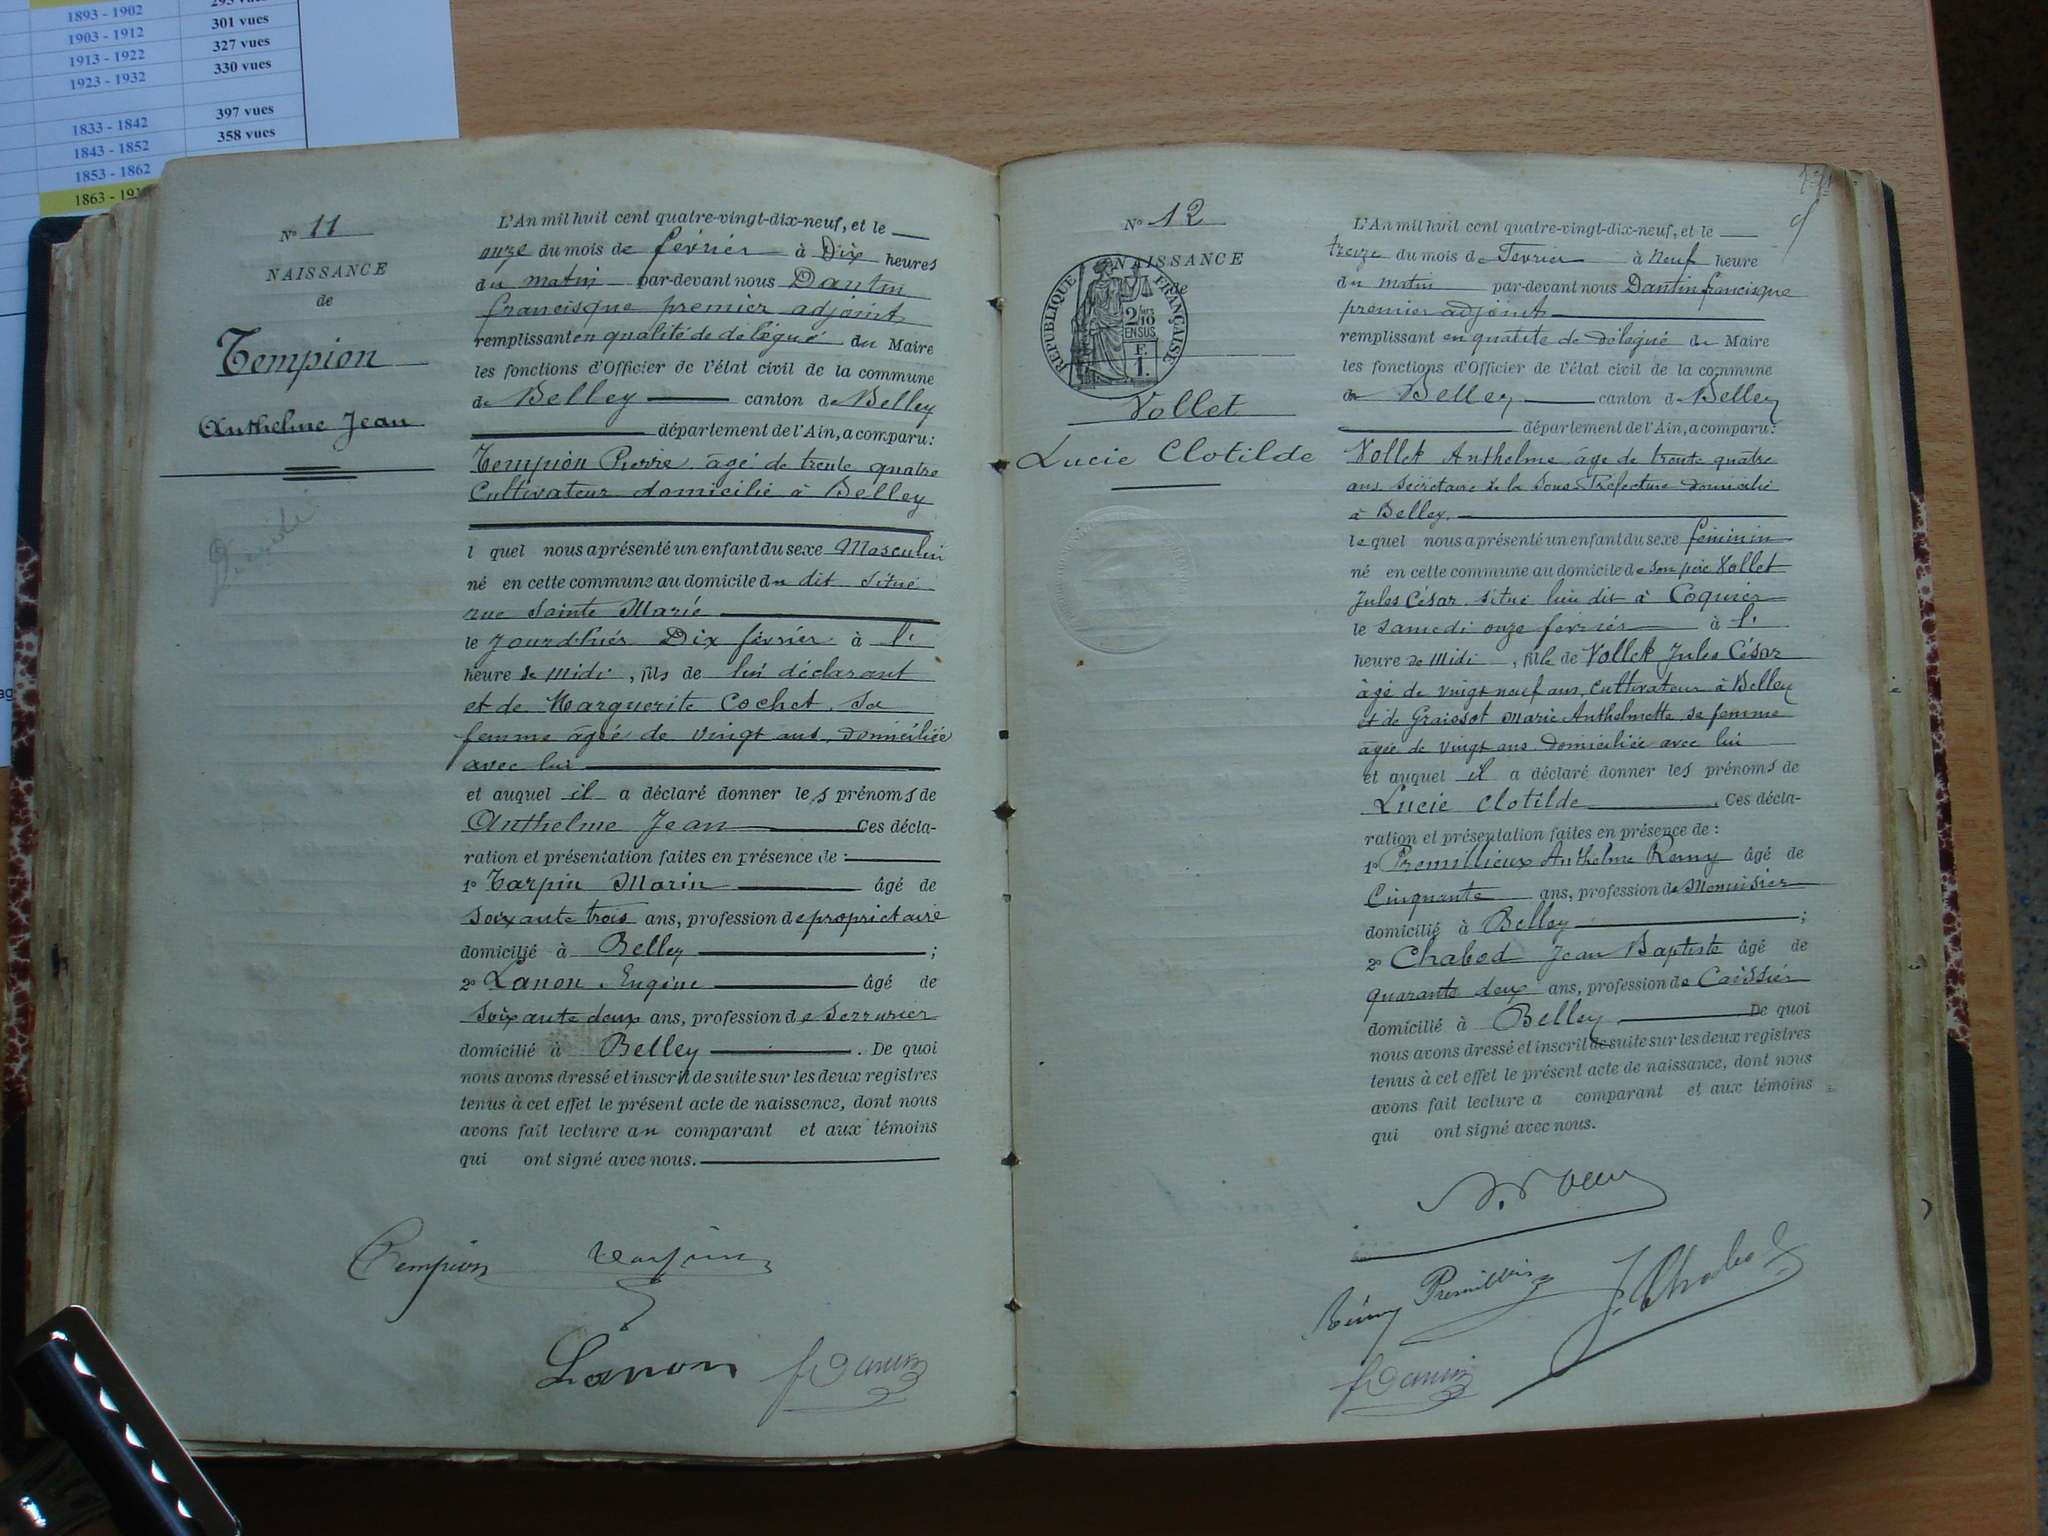 1893 - 1902 295 vues
1903 - 1912 301 vues
1913 - 1922 327 vues
1923 - 1932 330 vues
1833 - 1842 397 vues
1843 - 1852 358 vues
1853 - 1862
1863 - 191
N° 11
NAISSANCE
de
Tempion
Anthelme Jean
L'An mil huit cent quatre-vingt-dix-neuf, et le
onze du mois de février à Dix heures
du matin par-devant nous Dantin
francisque premier adjoint
remplissant en qualité de délégué du Maire
les fonctions d'Officier de l'état civil de la commune
de Belley canton de Belley
département de l'Ain, a comparu :
Tempion Pierre âgé de trente quatre
Cultivateur domicilié à Belley
l quel nous a présenté un enfant du sexe Masculin
né en cette commune au domicile du dit situé
rue Sainte Marie
le Jourd'hiér Dix février à l'
heure de Midi, fils de lui déclarant
et de Marguerite Cochet sa
femme âgée de vingt ans domiciliée
avec lui
et auquel il a déclaré donner les prénoms de
Anthelme Jean Ces décla-
ration et présentation faites en présence de :
1° Tarpin Marin âgé de
soixante trois ans, profession de propriétaire
domicilié à Belley ;
2° Lanon Eugène âgé de
soixante deux ans, profession de serrurier
domicilié à Belley . De quoi
nous avons dressé et inscrit de suite sur les deux registres
tenus à cet effet le présent acte de naissance, dont nous
avons fait lecture au comparant et aux témoins
qui ont signé avec nous.
Tempion Tarpin
Lanon f Dantin
N° 12
NAISSANCE
de
RÉPUBLIQUE FRANÇAISE
2/10
EN SUS
F.
1.
Vollet
Lucie Clotilde
L'An mil huit cent quatre-vingt-dix-neuf, et le
treize du mois de Fevrier à Neuf heure
du matin par-devant nous Dantin francisque
premier adjoint
remplissant en qualité de délégué du Maire
les fonctions d'Officier de l'état civil de la commune
de Belley canton de Belley
département de l'Ain, a comparu :
Vollet Anthelme âge de trente quatre
ans secrétaire de la Sous Préfecture domicilié
à Belley.
le quel nous a présenté un enfant du sexe féminin
né en cette commune au domicile de son père Vollet
Jules César situé lieu dit à Coquier
le samedi onze fevrier à l'
heure de Midi, fille de Vollet Jules César
âgé de vingt neuf ans, Cultivateur à Belley
et de Graissot Marie Anthelmette sa femme
âgée de vingt ans domiciliée avec lui
et auquel il a déclaré donner les prénoms de
Lucie Clotilde . Ces décla-
ration et présentation faites en présence de :
1° Premillieux Anthelme Remy âgé de
Cinquante ans, profession de Menuisier
domicilié à Belley ;
2° Chabod Jean Baptiste âgé de
quarante deux ans, profession de Caissier
domicilié à Belley De quoi
nous avons dressé et inscrit de suite sur les deux registres
tenus à cet effet le présent acte de naissance, dont nous
avons fait lecture a comparant et aux témoins
qui ont signé avec nous.
Rémy Premillieux J. Chabod
f Dantin